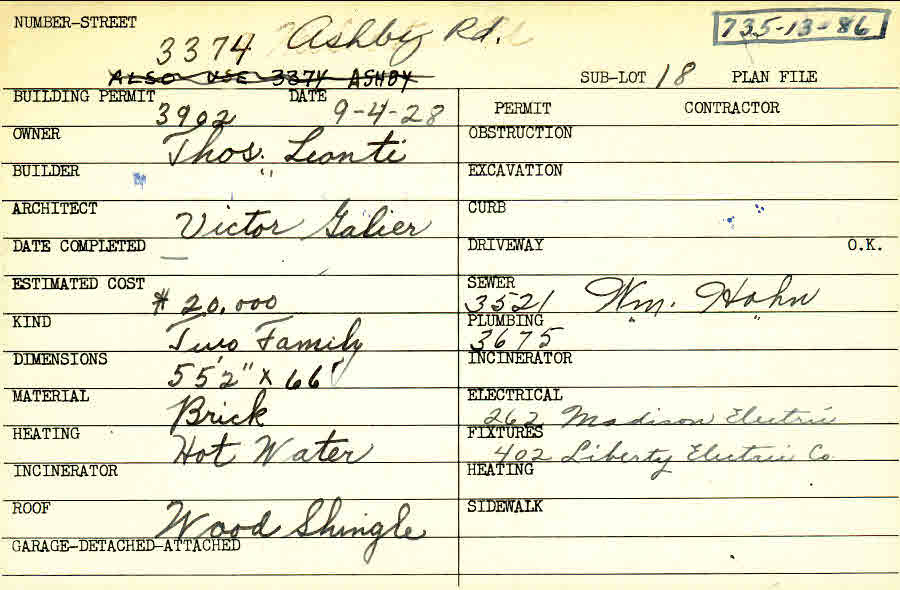 NUMBER-STREET 3374 Ashby Rd. 735-13-86
ALSO USE 3374 ASHBY SUB-LOT 18 PLAN FILE
BUILDING PERMIT 3902 DATE 9-4-28 PERMIT CONTRACTOR
OWNER Thos. Leonti OBSTRUCTION
BUILDER " EXCAVATION
ARCHITECT Victor Galier CURB
DATE COMPLETED — DRIVEWAY O.K.
ESTIMATED COST $ 20,000 SEWER 3521 Wm. Hohn
KIND Two Family PLUMBING 3675 " "
DIMENSIONS 55'2" X 66' INCINERATOR
MATERIAL Brick ELECTRICAL 262 Madison Electric
HEATING Hot Water FIXTURES 402 Liberty Electric Co.
INCINERATOR HEATING
ROOF Wood Shingle SIDEWALK
GARAGE-DETACHED-ATTACHED